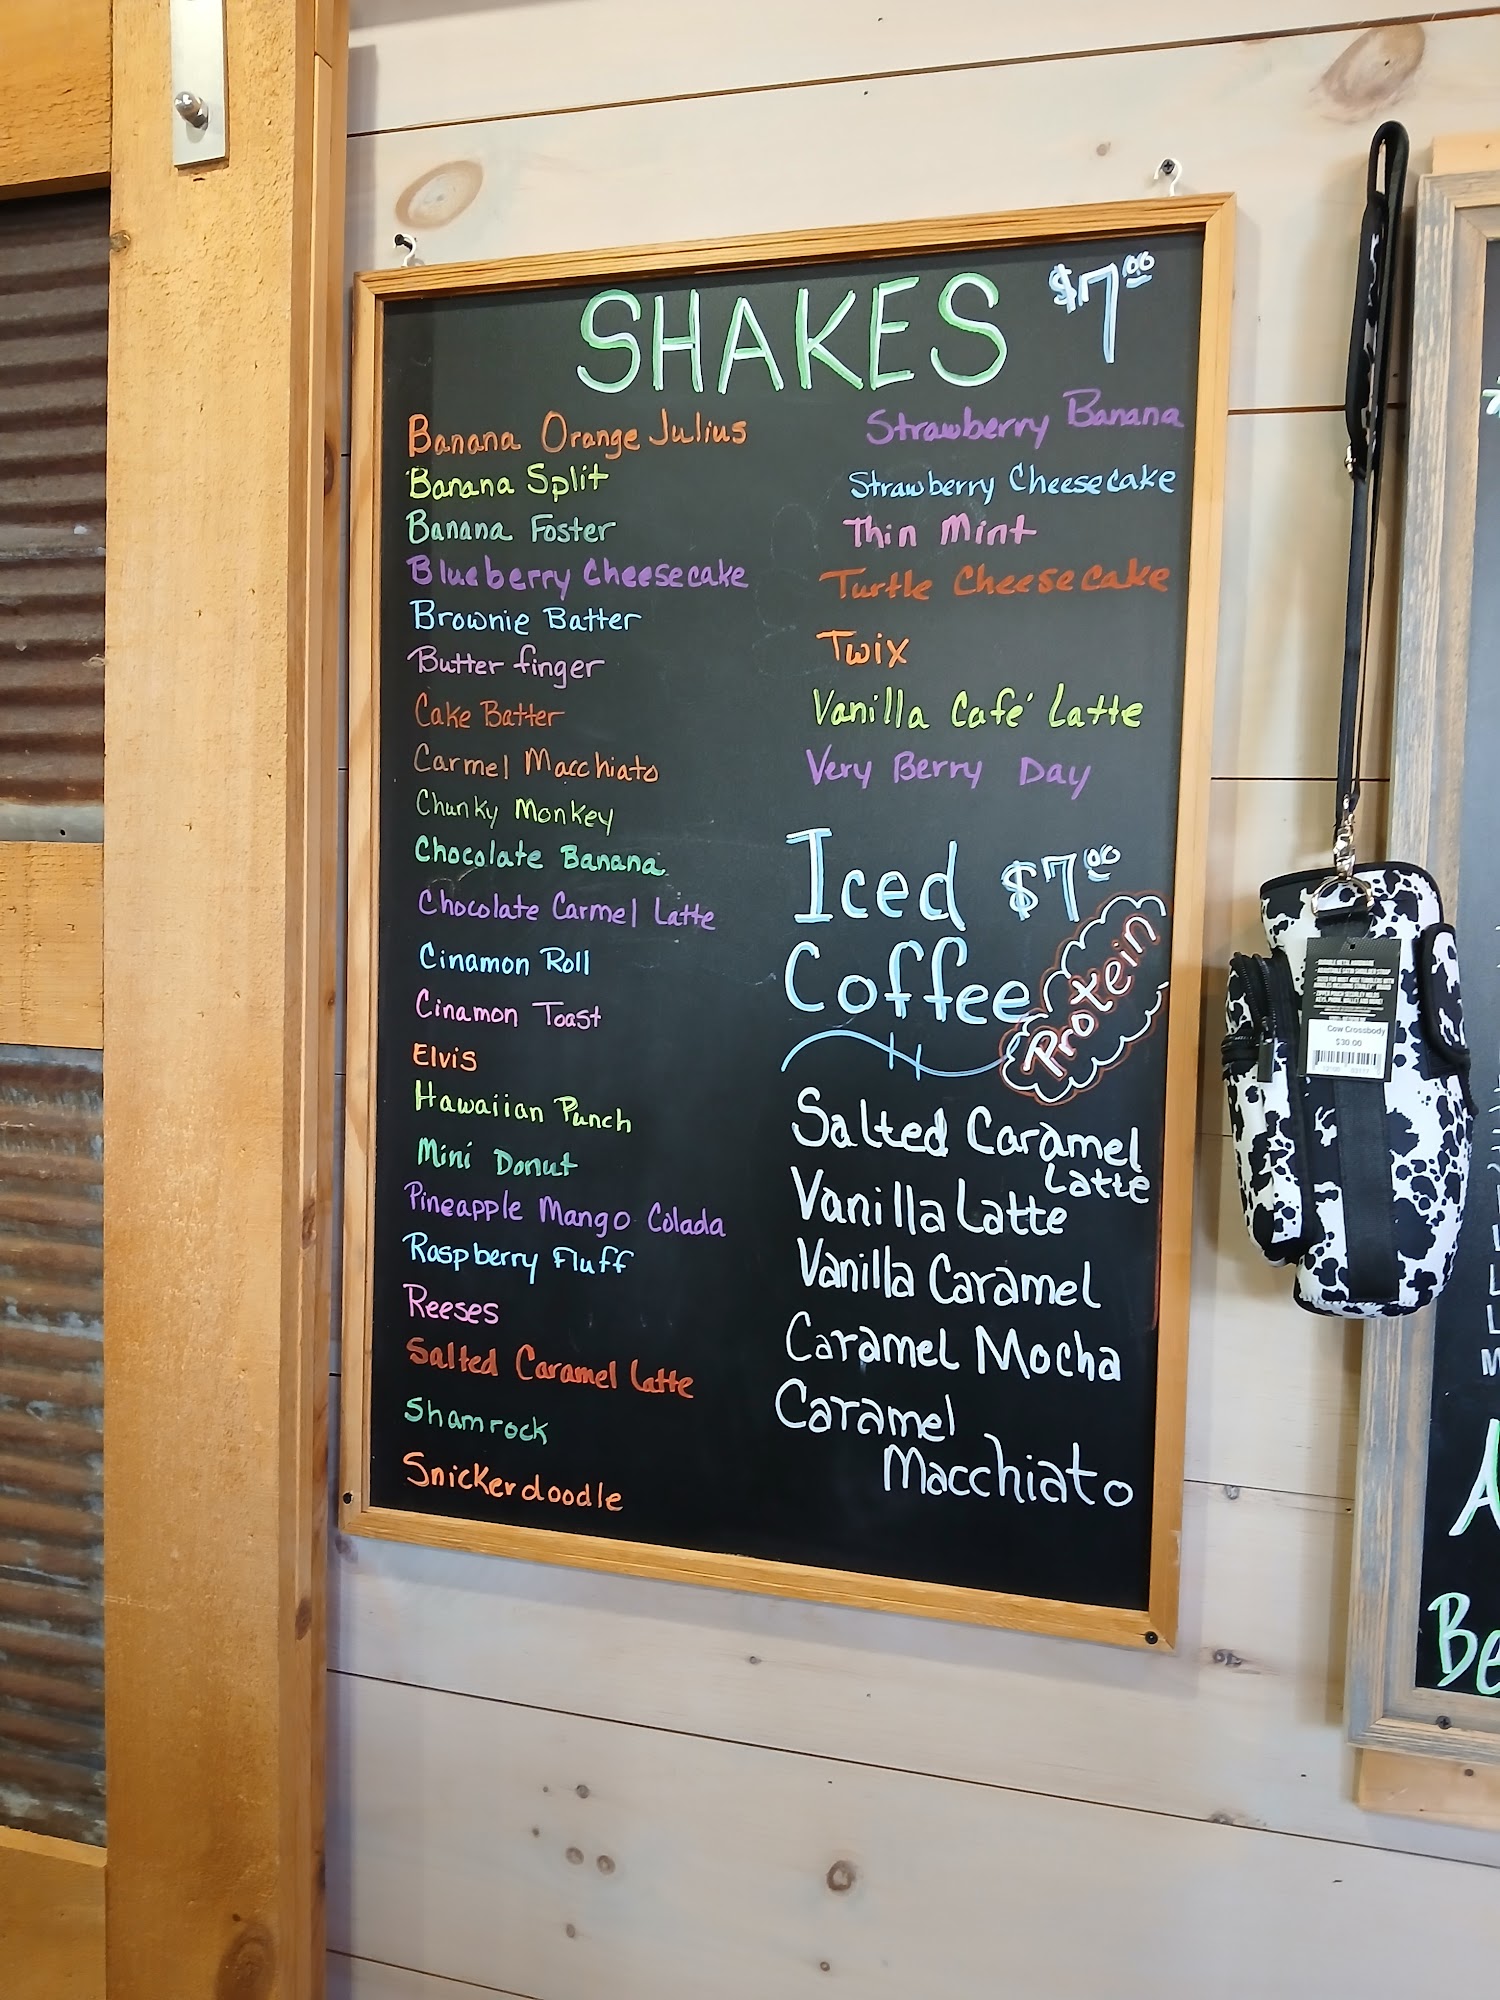 SHAKES $7.00
Banana Orange Julius
Banana Split
Banana Foster
Blueberry Cheesecake
Brownie Batter
Butterfinger
Cake Batter
Carmel Macchiato
Chunky Monkey
Chocolate Banana
Chocolate Carmel Latte
Cinamon Roll
Cinamon Toast
Elvis
Hawaiian Punch
Mini Donut
Pineapple Mango Colada
Raspberry Fluff
Reeses
Salted Caramel Latte
Shamrock
Snickerdoodle
Strawberry Banana
Strawberry Cheesecake
Thin Mint
Turtle Cheesecake
Twix
Vanilla Café Latte
Very Berry Day
Iced $7.00
Coffee
Protein
Salted Caramel
Latte
Vanilla Latte
Vanilla Caramel
Caramel Mocha
Caramel
Macchiato
Cow Crossbody
$30.00
Be